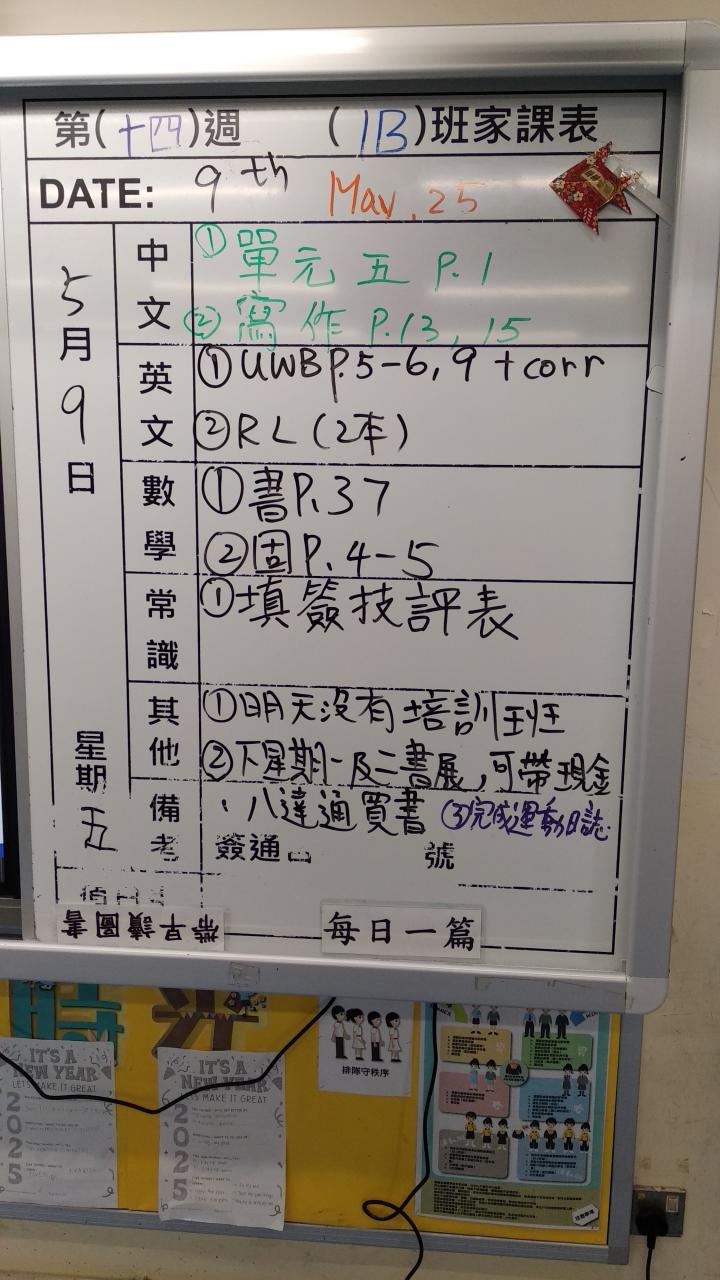 第(十四)週 (1B)班家課表
DATE: 9th May. 25
5月9日
星期五
中文
①單元五 P.1
②寫作 P.13, 15
英文
①UWB P.5-6, 9 + corr
②RL (2本)
數學
①書P.37
②固P.4-5
常識
①填簽技評表
其他
①明天沒有培訓班
②下星期一及二書展,可帶現金
備考
、八達通買書 ③完成運動日誌
簽通 號
帶早讀圖書
每日一篇
IT'S A
NEW YEAR
LET'S MAKE IT GREAT
2025
IT'S A
NEW YEAR
LET'S MAKE IT GREAT
2025
排隊守秩序